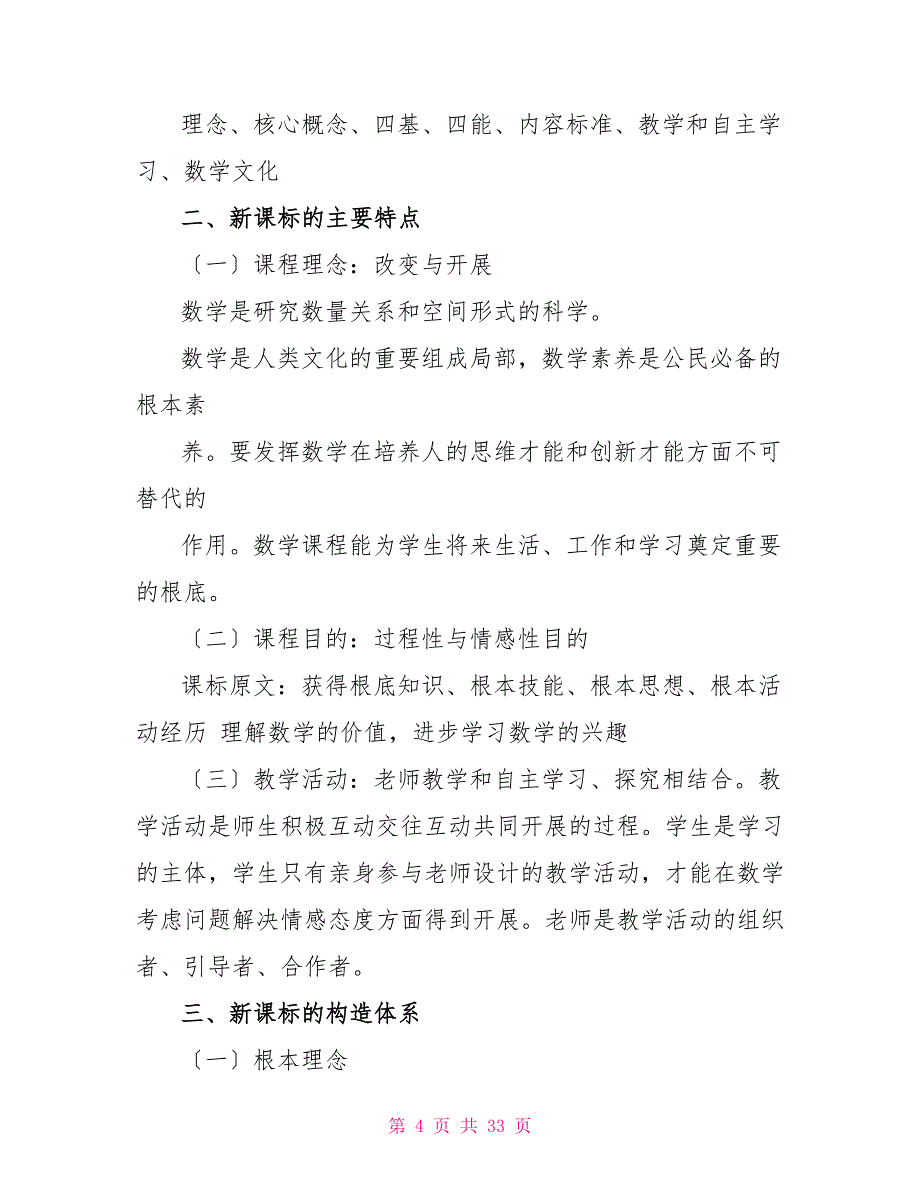 理念、核心概念、四基、四能、内容标准、教学和自主学
习、数学文化
二、新课标的主要特点
〔一〕课程理念：改变与开展
数学是研究数量关系和空间形式的科学。
数学是人类文化的重要组成局部，数学素养是公民必备的
根本素
养。要发挥数学在培养人的思维才能和创新才能方面不可
替代的
作用。数学课程能为学生将来生活、工作和学习奠定重要
的根底。
〔二〕课程目的：过程性与情感性目的
课标原文：获得根底知识、根本技能、根本思想、根本活
动经历 理解数学的价值，进步学习数学的兴趣
〔三〕教学活动：老师教学和自主学习、探究相结合。教
学活动是师生积极互动交往互动共同开展的过程。学生是学习
的主体，学生只有亲身参与老师设计的教学活动，才能在数学
考虑问题解决情感态度方面得到开展。老师是教学活动的组织
者、引导者、合作者。
三、新课标的构造体系
〔一〕根本理念
第 4 页 共 33 页